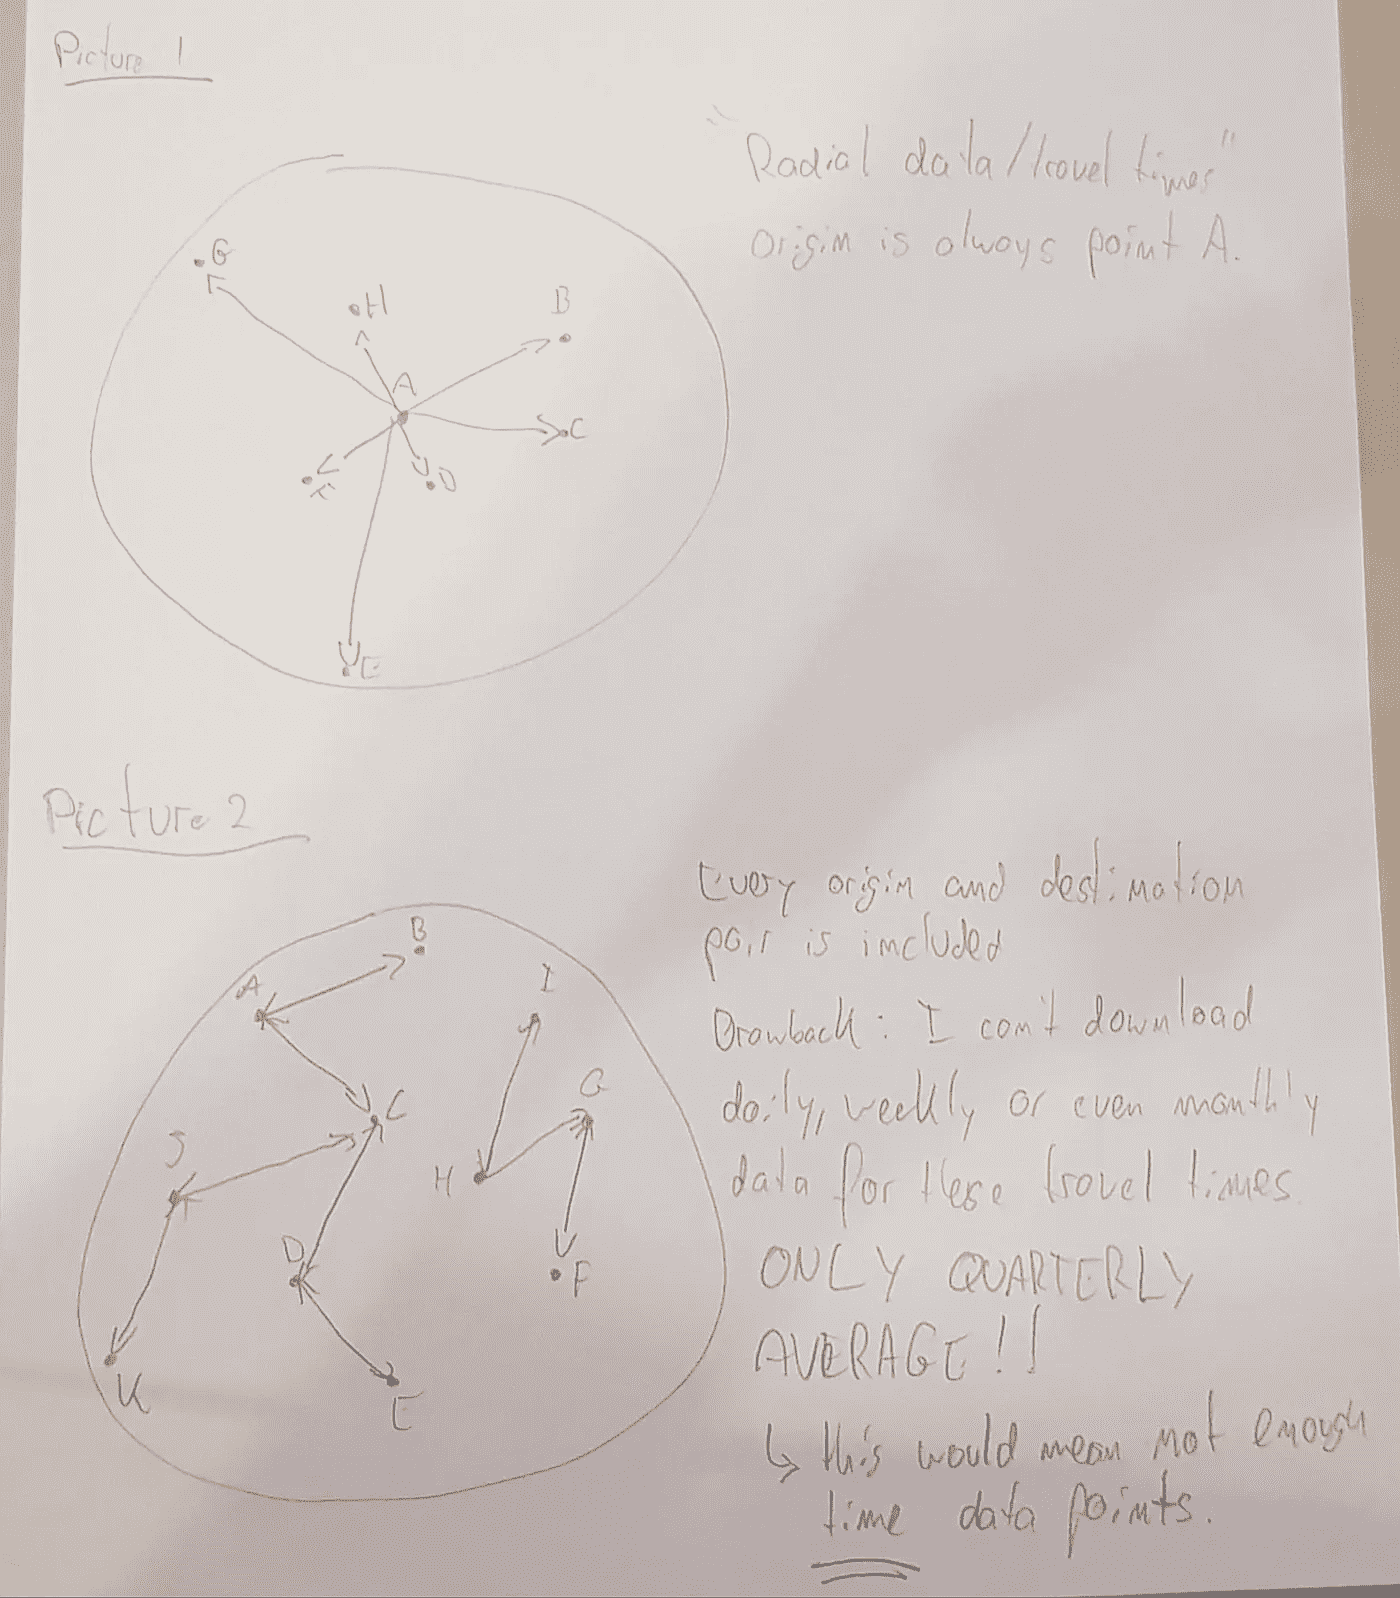 Picture 1
"Radial data/travel times"
origin is always point A.
G
H
B
A
C
F
D
E
Picture 2
Every origin and destination
pair is included
Drawback: I can't download
daily, weekly or even monthly
data for these travel times.
ONLY QUARTERLY
AVERAGE!!
↳ this would mean not enough
time data points.
B
A
I
C
G
J
H
D
F
K
E